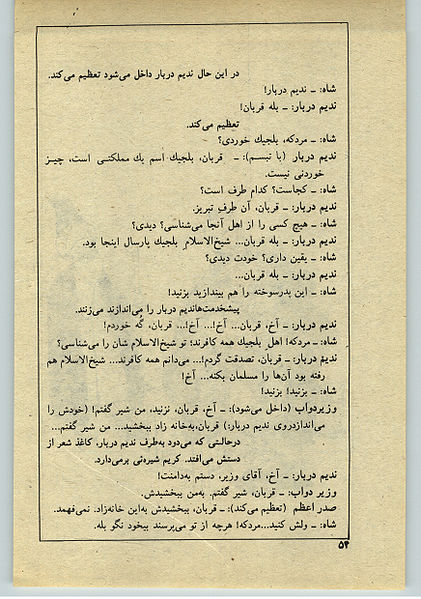 در این حال ندیم دربار داخل می‌شود تعظیم می‌کند.
شاه: ــ ندیم دربار!
ندیم دربار: ــ بله قربان!
تعظیم می‌کند.
شاه: ــ مردکه، بلجیك خوردی؟
ندیم دربار (با تبسم): ــ قربان، بلجیك اسم یك مملکتـی است، چیـز
خوردنی نیست.
شاه: ــ کجاست؟ کدام طرف است؟
ندیم دربار: ــ قربان، آن طرف تبریز.
شاه: ــ هیچ کسی را از اهل آنجا می‌شناسی؟ دیدی؟
ندیم دربار: ــ بله قربان... شیخ‌الاسلام بلجیك پارسال اینجا بود.
شاه: ــ یقین داری؟ خودت دیدی؟
ندیم دربار: ــ بله قربان...
شاه: ــ این پدرسوخته را هم بیندازید بزنید!
پیشخدمت‌هاندیم دربار را می‌اندازند می‌زنند.
ندیم دربار: ــ آخ، قربان... آخ!... آخ!... قربان، گُه خوردم!
شاه: ــ مردکه! اهل بلجیك همه کافرند؛ تو شیخ‌الاسلام شان را می‌شناسی؟
ندیم دربار: ــ قربان، تصدقت گردم!... می‌دانم همه کافرند... شیخ‌الاسلام هم
رفته بود آن‌ها را مسلمان بکنه... آخ!
شاه: ــ بزنید! بزنید!
وزیردواب (داخل می‌شود): ــ آخ، قربان، نزنید، من شیر گفتم! (خودش را
می‌اندازدروی ندیم دربار:) قربان،به‌خانه زاد ببخشید... من شیر گفتم...
درحالتـی که می‌دود به‌طرف ندیم دربار، کاغذ شعر از
دستش می‌افتد. کریم شیره‌ئی برمی‌دارد.
ندیم دربار: ــ آخ، آقای وزیر، دستم به‌دامنت!
وزیر دواب: ــ قربان، شیر گفتم. به‌من ببخشیدش.
صدر اعظم (تعظیم می‌کند): ــ قربان، ببخشیدش به‌این خانه‌زاد. نمی‌فهمد.
شاه: ــ ولش کنید...مردکه! هرچه از تو می‌پرسند بیخود نگو بله.
۵۴